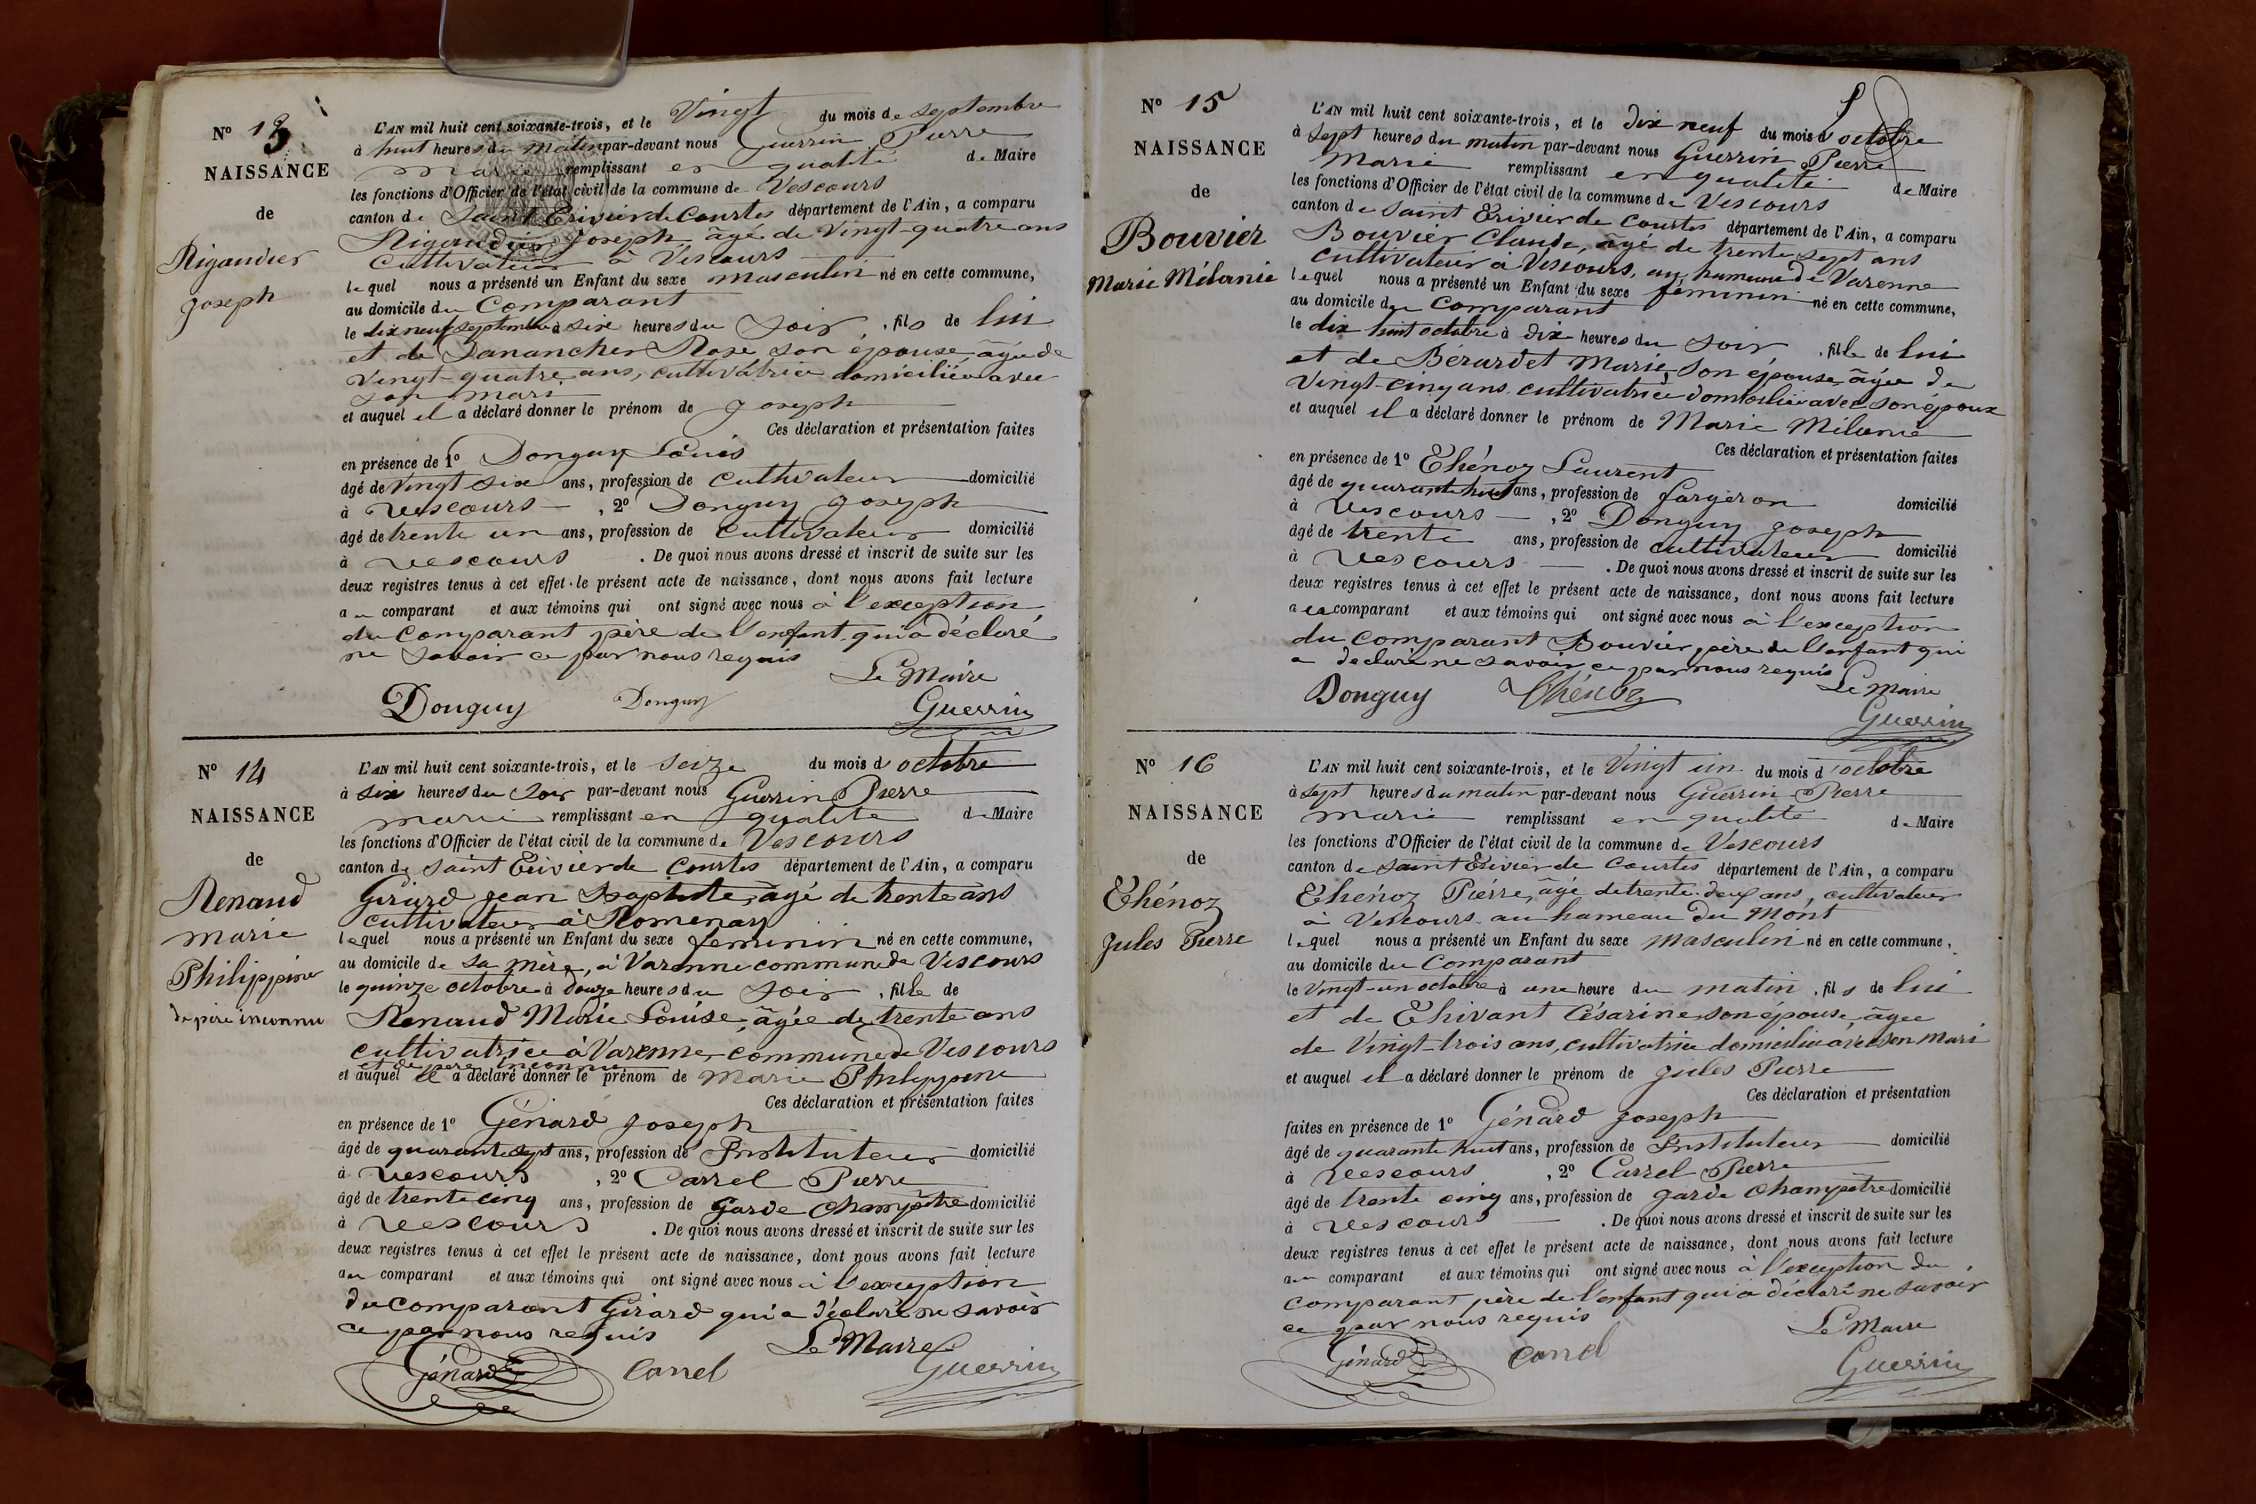 N° 13
NAISSANCE
de
Rigaudier
Joseph
L'AN mil huit cent soixante-trois, et le Vingt du mois de septembre
à huit heures du matin par-devant nous Guerrin Pierre
Marie remplissant en qualité de Maire
les fonctions d'Officier de l'état civil de la commune de Vescours
canton de Saint Trivier de Courtes département de l'Ain, a comparu
Rigaudier Joseph, âgé de vingt-quatre ans
cultivateur à Vescours
lequel nous a présenté un Enfant du sexe masculin né en cette commune,
au domicile du Comparant
le dix neuf septembre à six heures du soir, fils de lui
et de Danancher Rose son épouse, âgée de
vingt-quatre ans, cultivatrice domiciliée avec
son mari
et auquel il a déclaré donner le prénom de Joseph
Ces déclaration et présentation faites
en présence de 1° Donguy Louis
âgé de vingt six ans, profession de cultivateur domicilié
à Vescours, 2° Donguy Joseph
âgé de trente un ans, profession de cultivateur domicilié
à Vescours. De quoi nous avons dressé et inscrit de suite sur les
deux registres tenus à cet effet le présent acte de naissance, dont nous avons fait lecture
au comparant et aux témoins qui ont signé avec nous à l'exception
du comparant père de l'enfant qui a déclaré
ne savoir ce par nous requis
Le Maire
Donguy Donguy Guerrin
N° 14
NAISSANCE
de
Renaud
Marie
Philippine
de père inconnu
L'AN mil huit cent soixante-trois, et le seize du mois d'octobre
à six heures du soir par-devant nous Guerrin Pierre
Marie remplissant en qualité de Maire
les fonctions d'Officier de l'état civil de la commune de Vescours
canton de Saint Trivier de Courtes département de l'Ain, a comparu
Girard Jean Baptiste, âgé de trente ans
cultivateur à Romenay
lequel nous a présenté un Enfant du sexe féminin né en cette commune,
au domicile de sa mère, à Varenne commune de Vescours
le quinze octobre à douze heures du soir, fille de
Renaud Marie Louise, âgée de trente ans
cultivatrice à Varenne commune de Vescours
et de père inconnu
et auquel il a déclaré donner le prénom de Marie Philippine
Ces déclaration et présentation faites
en présence de 1° Génard Joseph
âgé de quarante sept ans, profession de Instituteur domicilié
à Vescours, 2° Carrel Pierre
âgé de trente cinq ans, profession de garde champêtre domicilié
à Vescours. De quoi nous avons dressé et inscrit de suite sur les
deux registres tenus à cet effet le présent acte de naissance, dont nous avons fait lecture
au comparant et aux témoins qui ont signé avec nous à l'exception
du comparant Girard qui a déclaré ne savoir
ce par nous requis
Le Maire
Génard Carrel Guerrin
N° 15
NAISSANCE
de
Bouvier
Marie Mélanie
L'AN mil huit cent soixante-trois, et le dix neuf du mois d'octobre
à sept heures du matin par-devant nous Guerrin Pierre
Marie remplissant en qualité de Maire
les fonctions d'Officier de l'état civil de la commune de Vescours
canton de Saint Trivier de Courtes département de l'Ain, a comparu
Bouvier Claude, âgé de trente sept ans
cultivateur à Vescours, au hameau de Varenne
lequel nous a présenté un Enfant du sexe féminin né en cette commune,
au domicile du Comparant
le dix huit octobre à dix heures du soir, fille de lui
et de Bérardet Marie, son épouse, âgée de
vingt-cinq ans cultivatrice domiciliée avec son époux
et auquel il a déclaré donner le prénom de Marie Mélanie
Ces déclaration et présentation faites
en présence de 1° Thénoz Laurent
âgé de quarante huit ans, profession de forgeron domicilié
à Vescours, 2° Donguy Joseph
âgé de trente ans, profession de cultivateur domicilié
à Vescours. De quoi nous avons dressé et inscrit de suite sur les
deux registres tenus à cet effet le présent acte de naissance, dont nous avons fait lecture
au comparant et aux témoins qui ont signé avec nous à l'exception
du comparant Bouvier, père de l'enfant qui
a déclaré ne savoir ce par nous requis
Le Maire
Donguy Thénoz Guerrin
N° 16
NAISSANCE
de
Thénoz
Jules Pierre
L'AN mil huit cent soixante-trois, et le Vingt un du mois d'octobre
à sept heures du matin par-devant nous Guerrin Pierre
Marie remplissant en qualité de Maire
les fonctions d'Officier de l'état civil de la commune de Vescours
canton de Saint Trivier de Courtes département de l'Ain, a comparu
Thénoz Pierre, âgé de trente-deux ans, cultivateur
à Vescours au hameau du Mont
lequel nous a présenté un Enfant du sexe masculin né en cette commune,
au domicile du Comparant
le vingt-un octobre à une heure du matin, fils de lui
et de Thivant Césarine son épouse, âgée
de vingt-trois ans, cultivatrice domiciliée avec son mari
et auquel il a déclaré donner le prénom de Jules Pierre
Ces déclaration et présentation
faites en présence de 1° Génard Joseph
âgé de quarante huit ans, profession de Instituteur domicilié
à Vescours, 2° Carrel Pierre
âgé de trente cinq ans, profession de garde champêtre domicilié
à Vescours. De quoi nous avons dressé et inscrit de suite sur les
deux registres tenus à cet effet le présent acte de naissance, dont nous avons fait lecture
au comparant et aux témoins qui ont signé avec nous à l'exception du
comparant père de l'enfant qui a déclaré ne savoir
ce par nous requis
Le Maire
Génard Carrel Guerrin